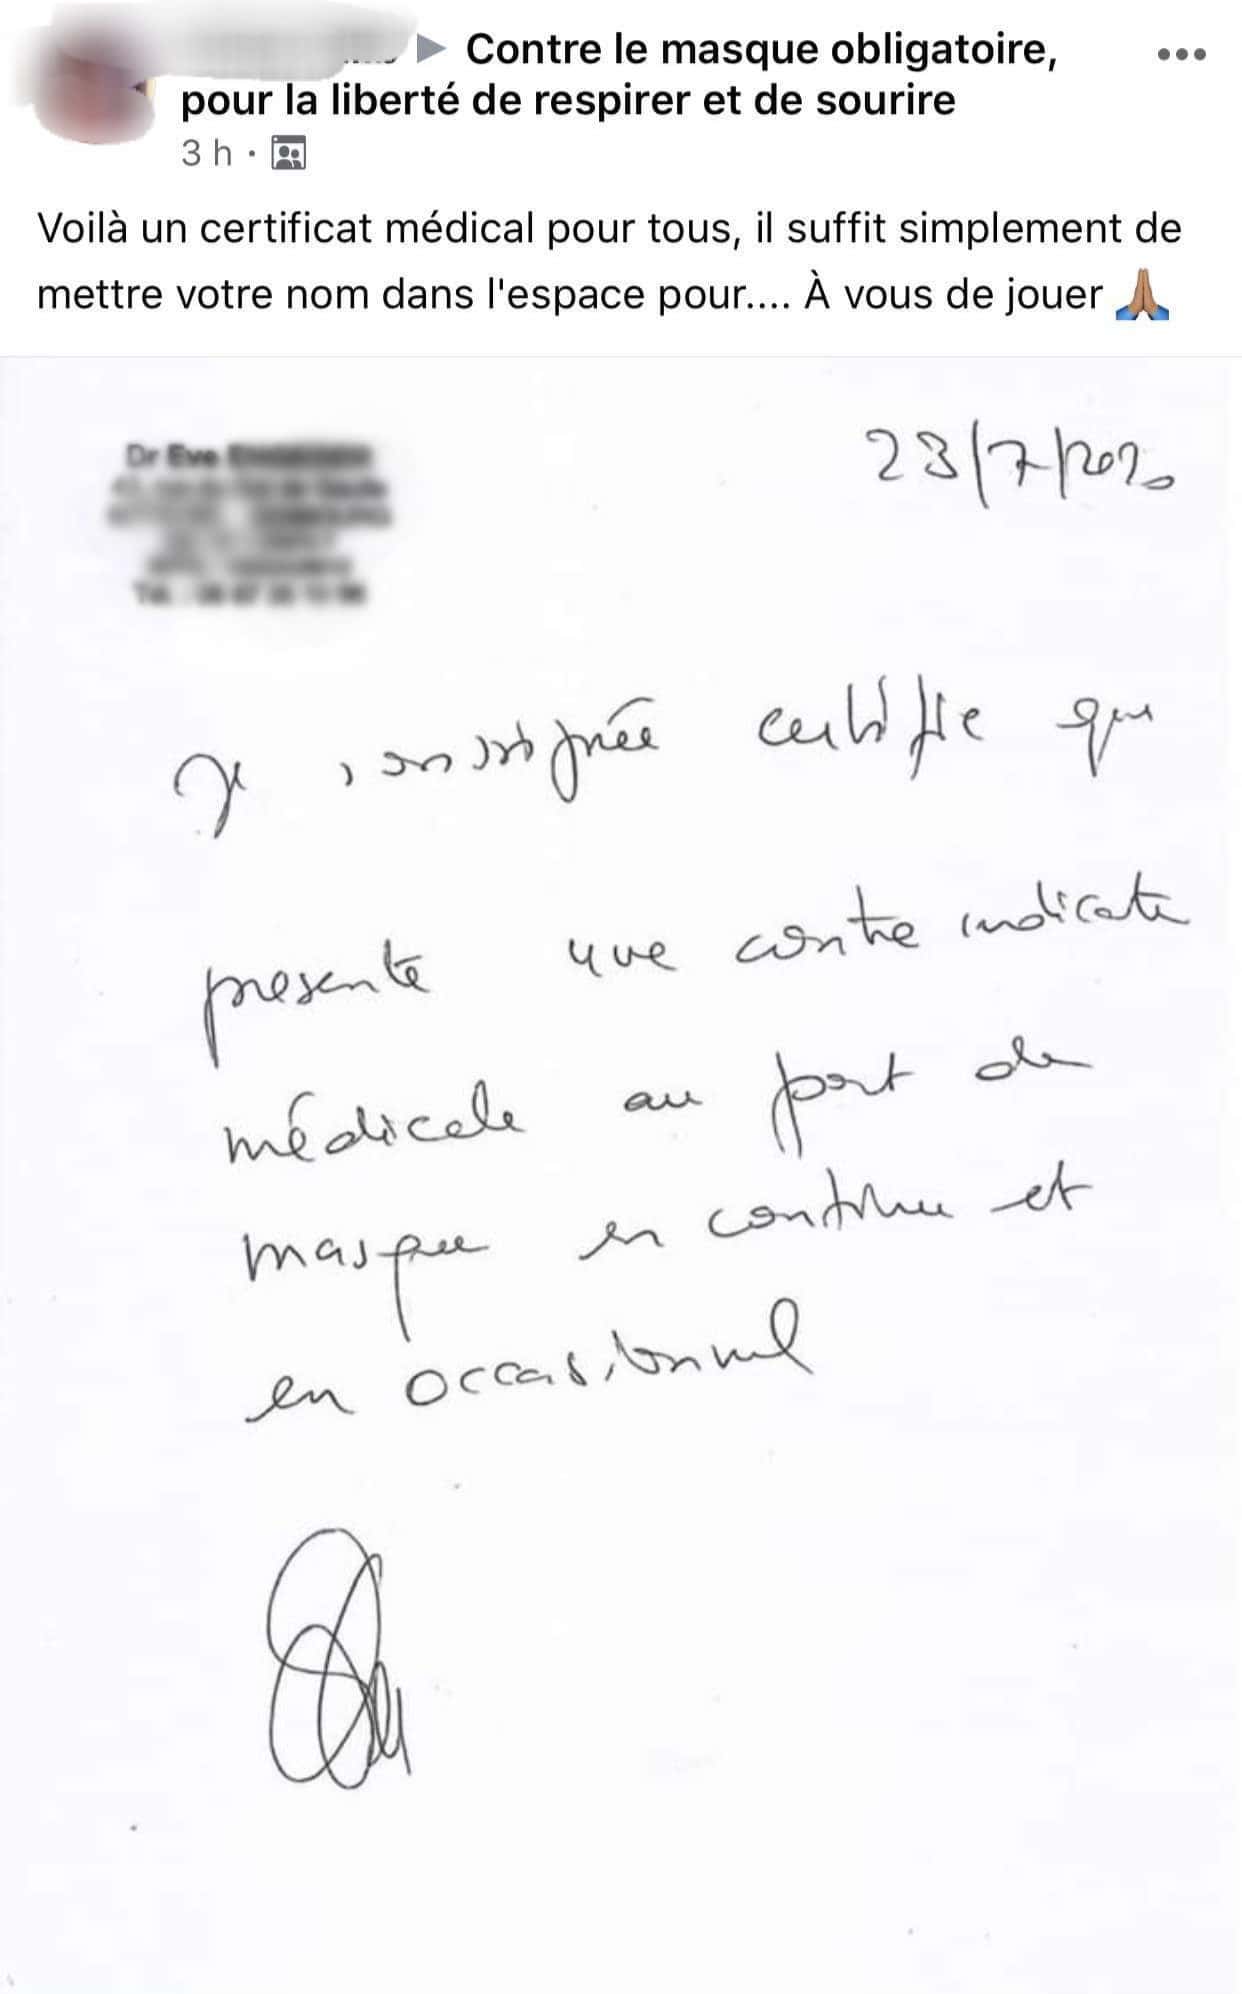 Contre le masque obligatoire,
pour la liberté de respirer et de sourire
3 h
Voilà un certificat médical pour tous, il suffit simplement de
mettre votre nom dans l'espace pour.... À vous de jouer 🙏🏽
Dr Eve
23/7/2020
Je, soussignée certifie que
présente une contre indication
médicale au port de
masque en continu et
en occasionnel